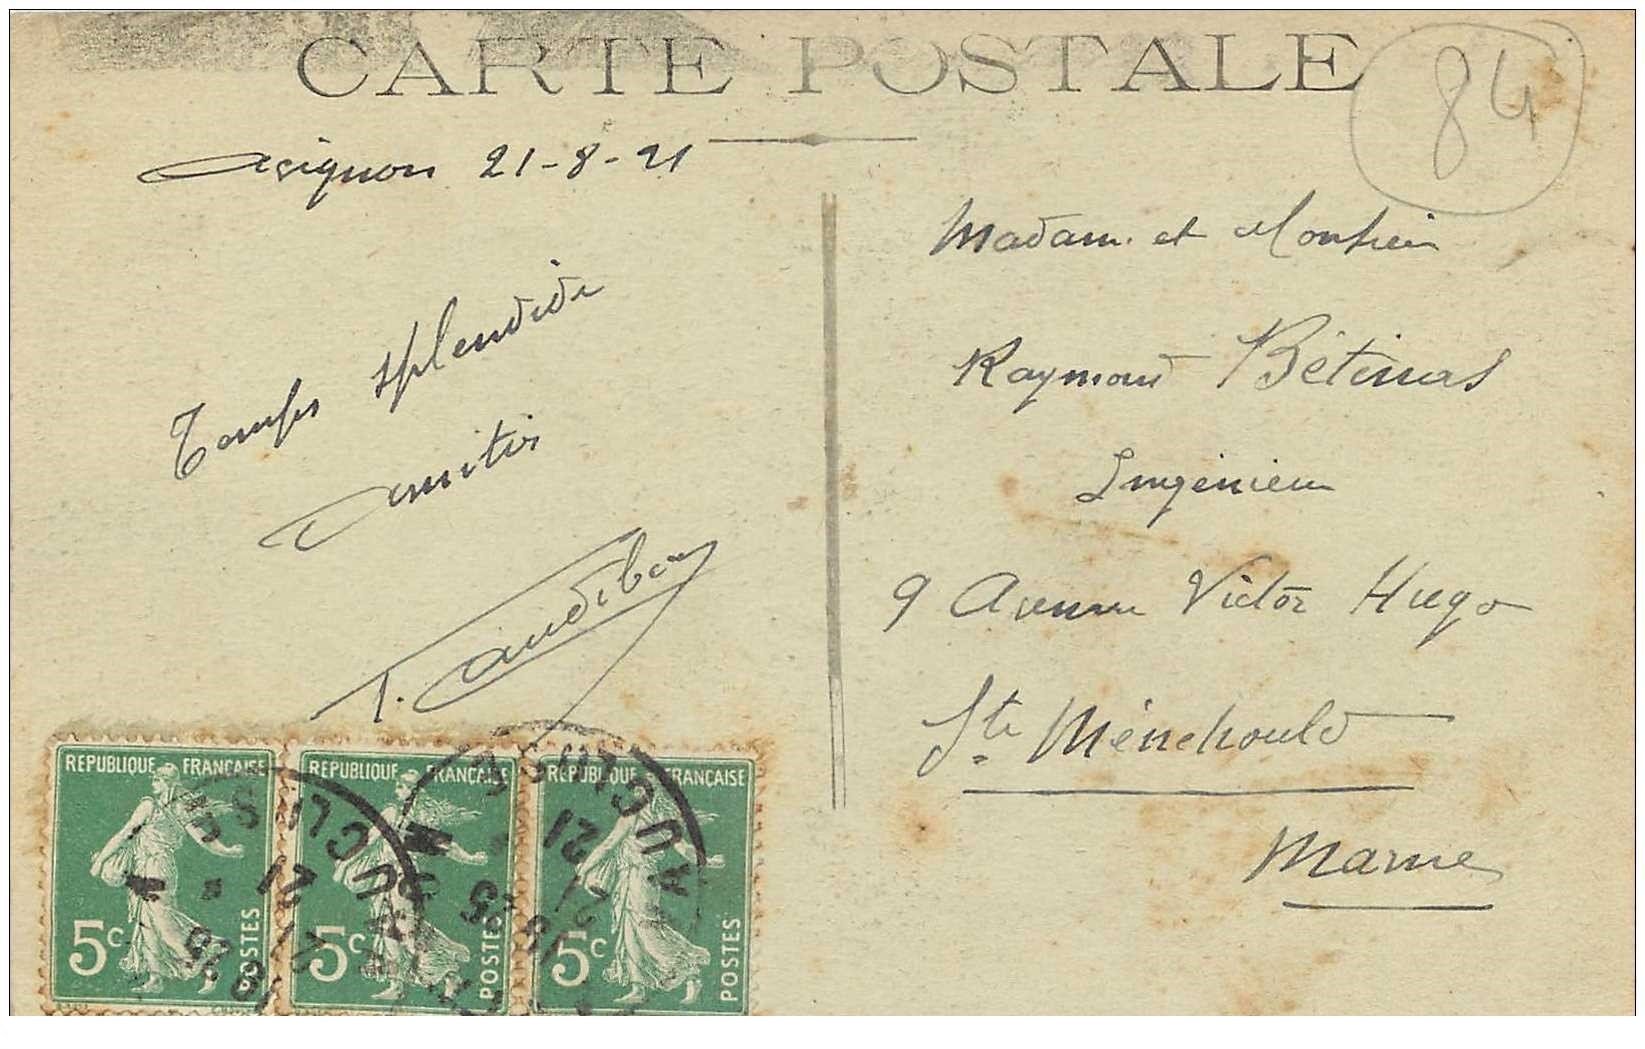 CARTE POSTALE
84
Avignon 21-8-21
Temps splendide
Amitiés
Madame et Monsieur
Raymond
Ingénieur
9 Avenue Victor Hugo
Ste Ménehould
Marne
REPUBLIQUE FRANÇAISE
5c POSTES
REPUBLIQUE FRANÇAISE
5c POSTES
REPUBLIQUE FRANÇAISE
5c POSTES
VAUCLUSE
18 25
21
VAUCLUSE
18 25
21